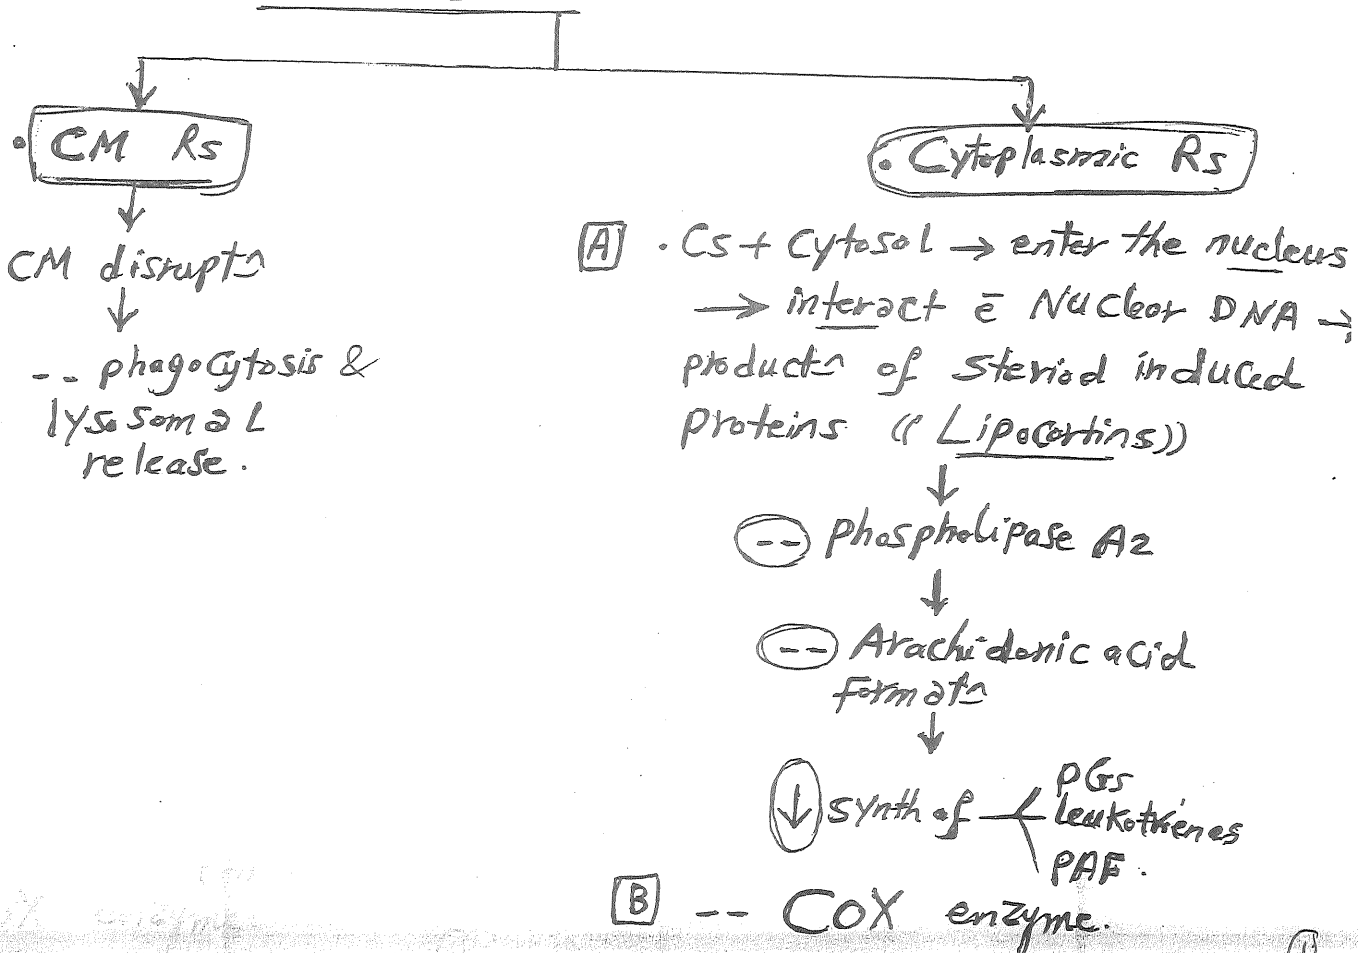 • CM Rs
CM disruptn
-- phagocytosis &
lysosomal
release.
• Cytoplasmic Rs
A • Cs + Cytosol → enter the nucleus
→ interact ē Nuclear DNA →
productn of steriod induced
proteins ((Lipocortins))
-- phospholipase A2
-- Arachidonic acid
formatn
↓ synth of
PGs
leukotrienes
PAF.
B -- COX enzyme.